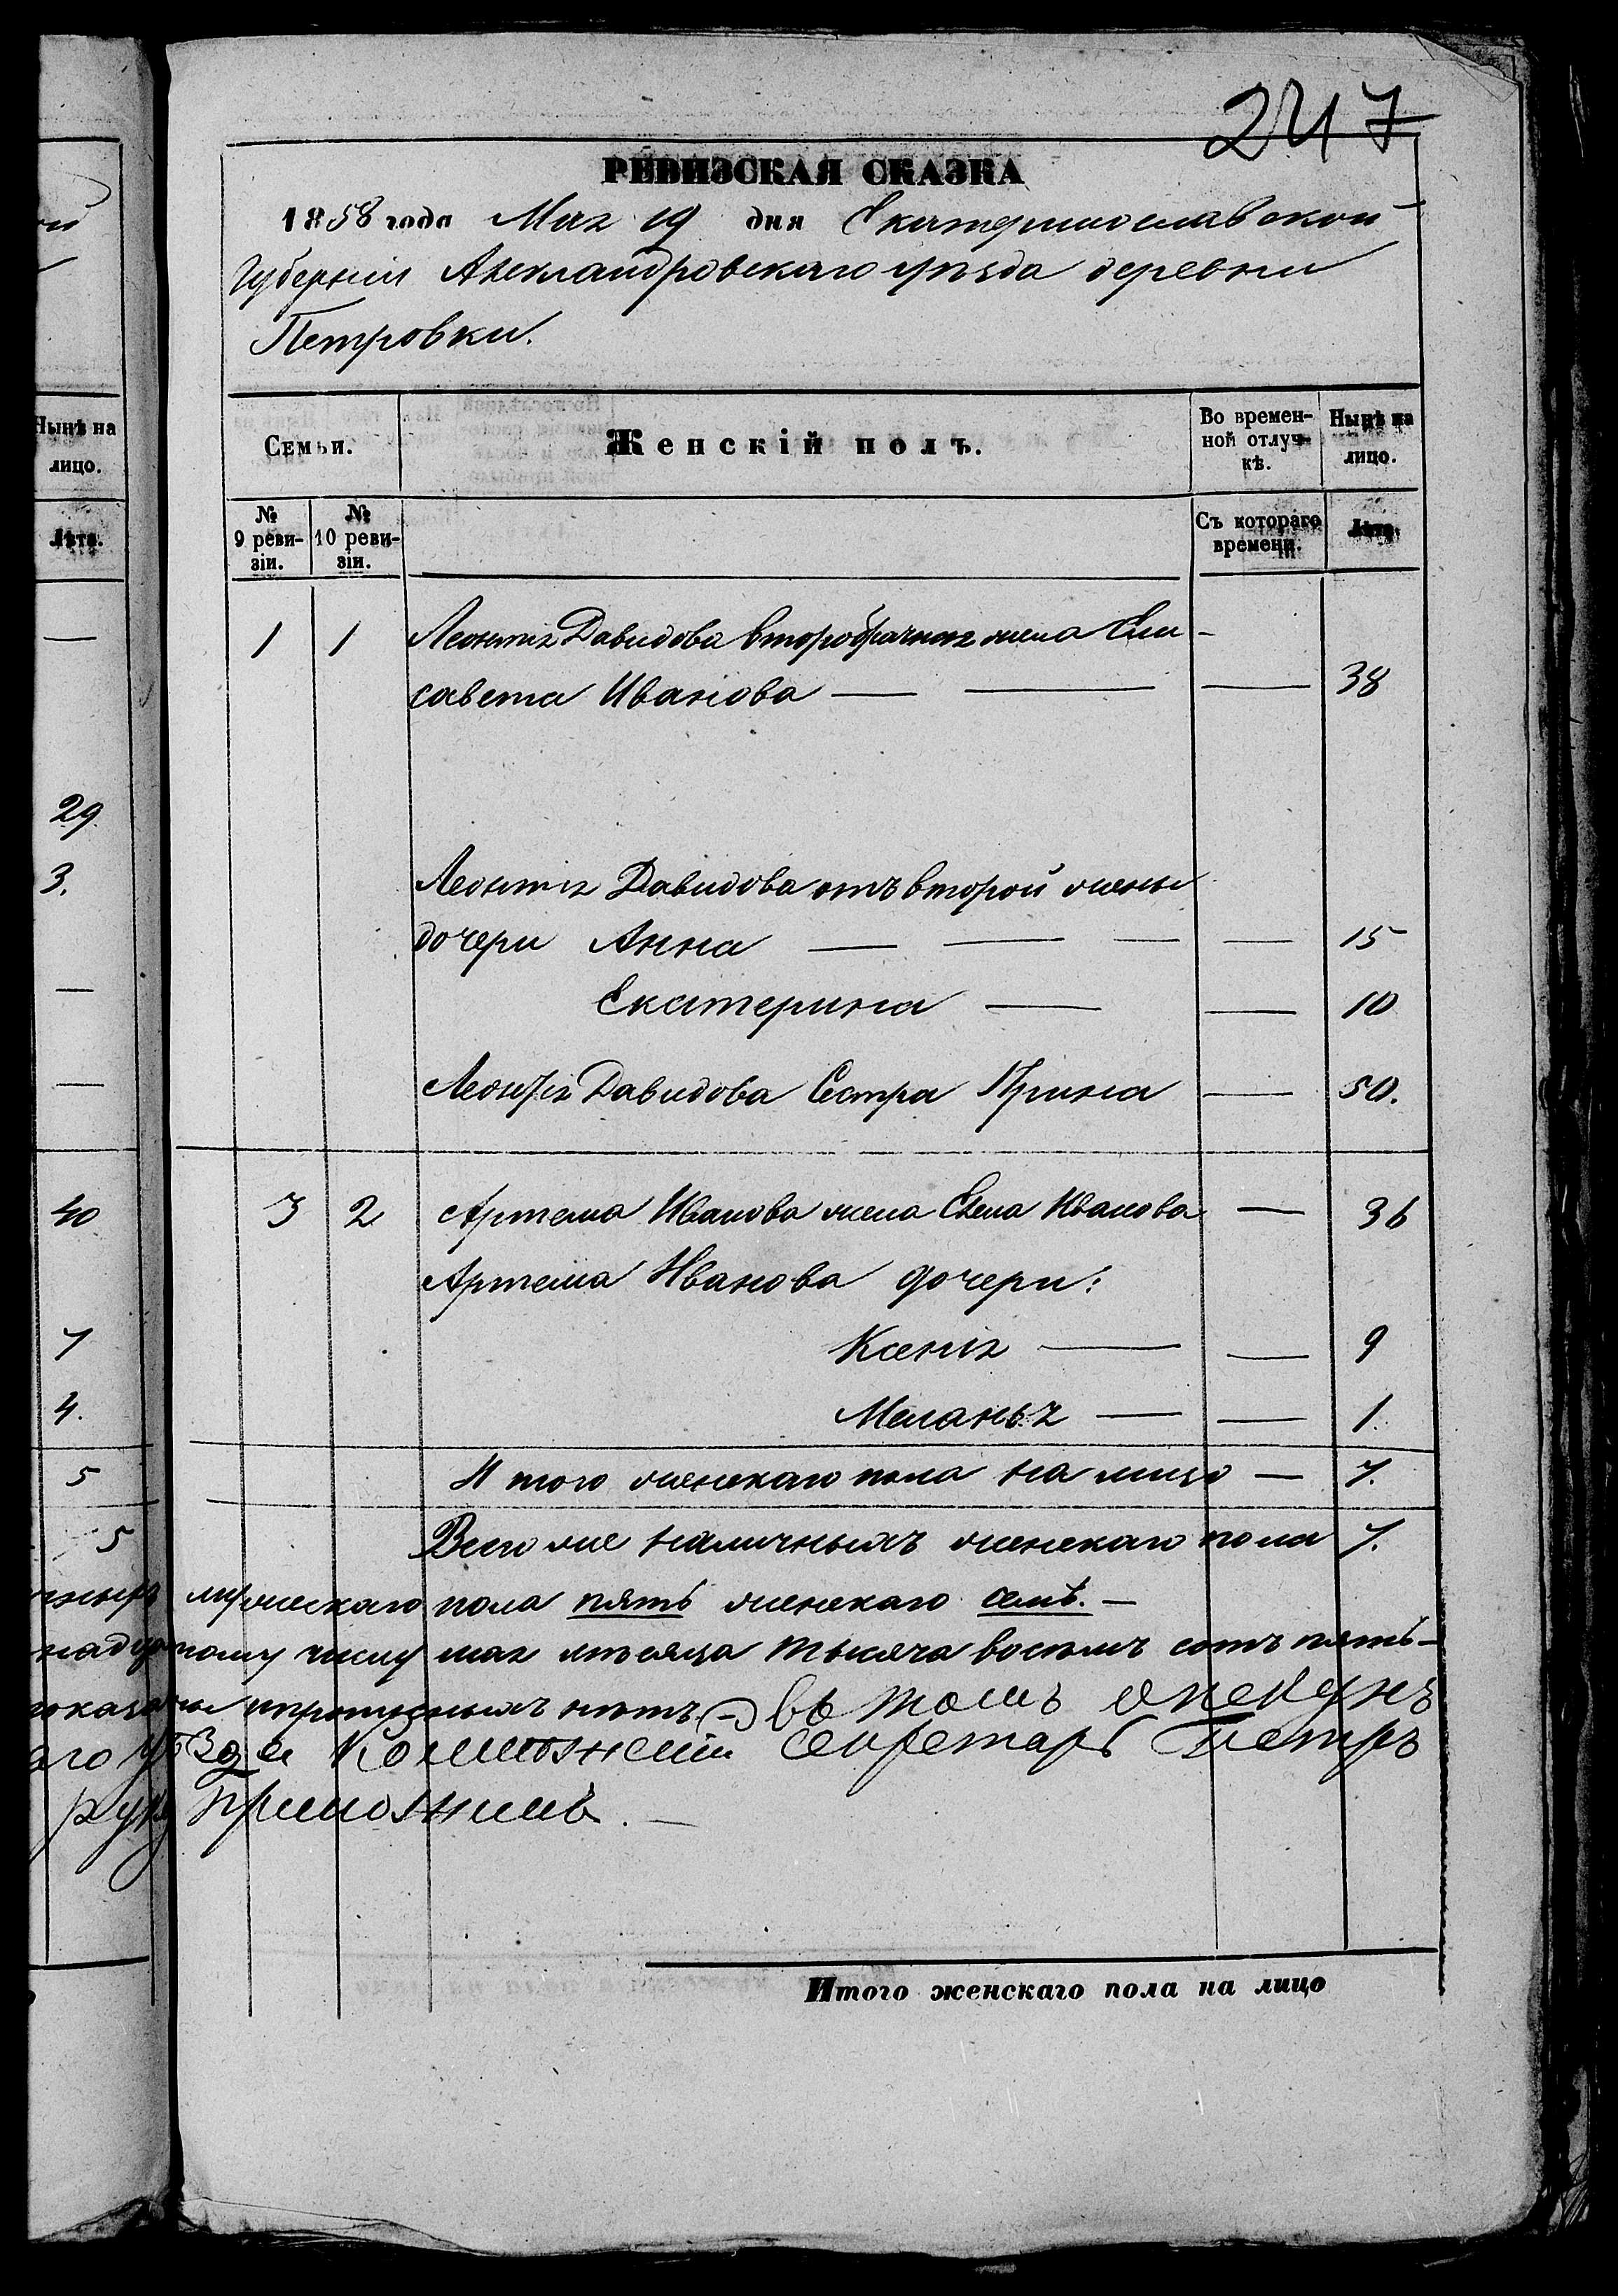 247
РЕВИЗСКАЯ СКАЗКА
1858 года Мая 19 дня Екатеринославской
Губерніи Александровскаго уѣзда деревни
Петровки.
Нынѣ на лицо.
Лѣта.
Семьи.
Женскій полъ.
Во времен-
ной отлуч-
кѣ.
Нынѣ на
лицо.
№
9 реви-
зіи.
№
10 реви-
зіи.
Съ котораго
времени.
Лѣта.
1 1 Леонтія Давидова второбрачная жена Ели-
савета Иванова — — — 38
29
3.
Леонтія Давидова отъ второй жены
дочери Анна — — — — 15
Екатерина — — 10
Леонтія Давидова Сестра Ирина — 50.
40
3 2 Артема Иванова жена Елена Иванова — 36
Артема Иванова дочери:
7
Ксенія — — 9
4.
Меланья — — 1.
5
Итого женскаго пола на лицо — 7.
5
Всего же наличныхъ женскаго пола 7.
мужескаго пола пять женскаго семь. —
числу мая мѣсяца тысяча восемь сотъ пять-
пропускныхъ нѣтъ въ томъ опекунъ
Уѣзда Коллежскій Секретарь Петръ
руку приложилъ. —
Итого женскаго пола на лицо